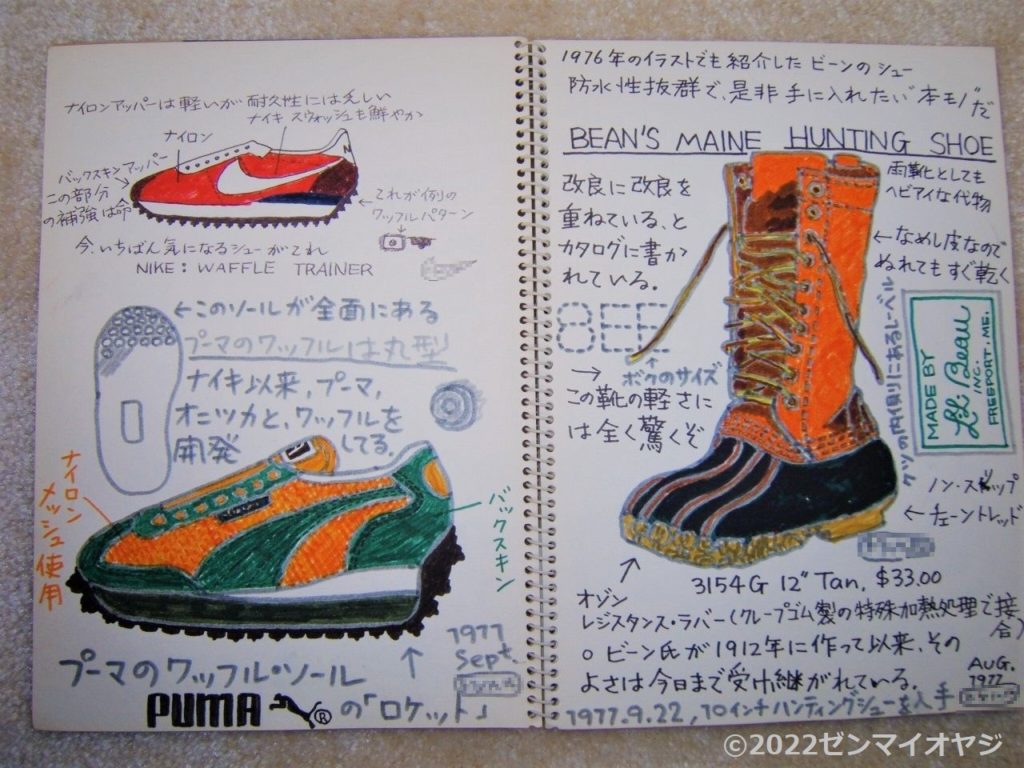 ナイロンアッパーは軽いが耐久性には乏しい
ナイキ スウォッシュも鮮やか
ナイロン
バックスキンアッパー
この部分
の補強は命
←これが例の
ワッフルパターン
今、いちばん気になるシューがこれ
NIKE: WAFFLE TRAINER
←このソールが全面にある
プーマのワッフルは丸型
ナイキ以来、プーマ,
オニツカと、ワッフルを
開発してる.
ナイロン
メッシュ使用
バックスキン
1977
Sept.
プーマのワッフル・ソール
PUMA ® の「ロケット」
1976年のイラストでも紹介した ビーンのシュー
防水性抜群で、是非手に入れたい"本モノ"だ
BEAN'S MAINE HUNTING SHOE
改良に改良を
重ねている、と
カタログに書か
れている.
雨靴としても
ヘビアイな代物
←なめし皮なので
ぬれてもすぐ乾く
8EE
↑
ボクのサイズ
→
この靴の軽さに
は全く驚くぞ
クツの内側にあるレーベル
MADE BY
L.L. Bean
INC.
FREEPORT, ME.
ノン・スリップ
←チェーントレッド
3154G 12" Tan, $33.00
オゾン
レジスタンス・ラバー(クレープゴム製の特殊加熱処理で接合)
○ ビーン氏が1912年に作って以来、その
よさは今日まで受け継がれている.
AUG.
1977
1977.9.22, 10インチハンティングシューを入手
©2022ゼンマイオヤジ